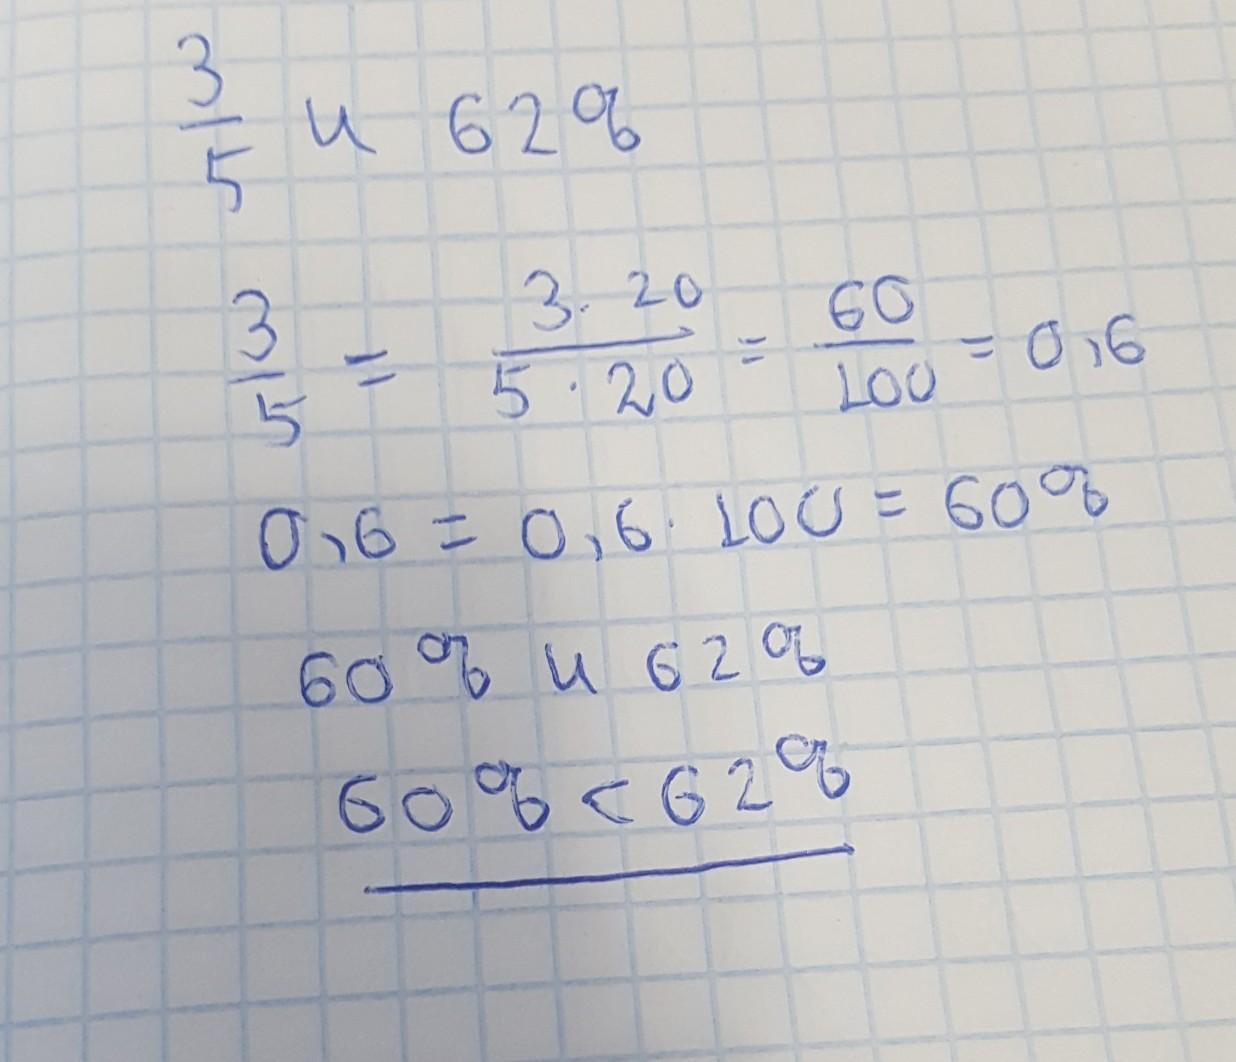 3/5 и 62%
3/5 = 3·20/5·20 = 60/100 = 0,6
0,6 = 0,6·100 = 60%
60% и 62%
60% < 62%